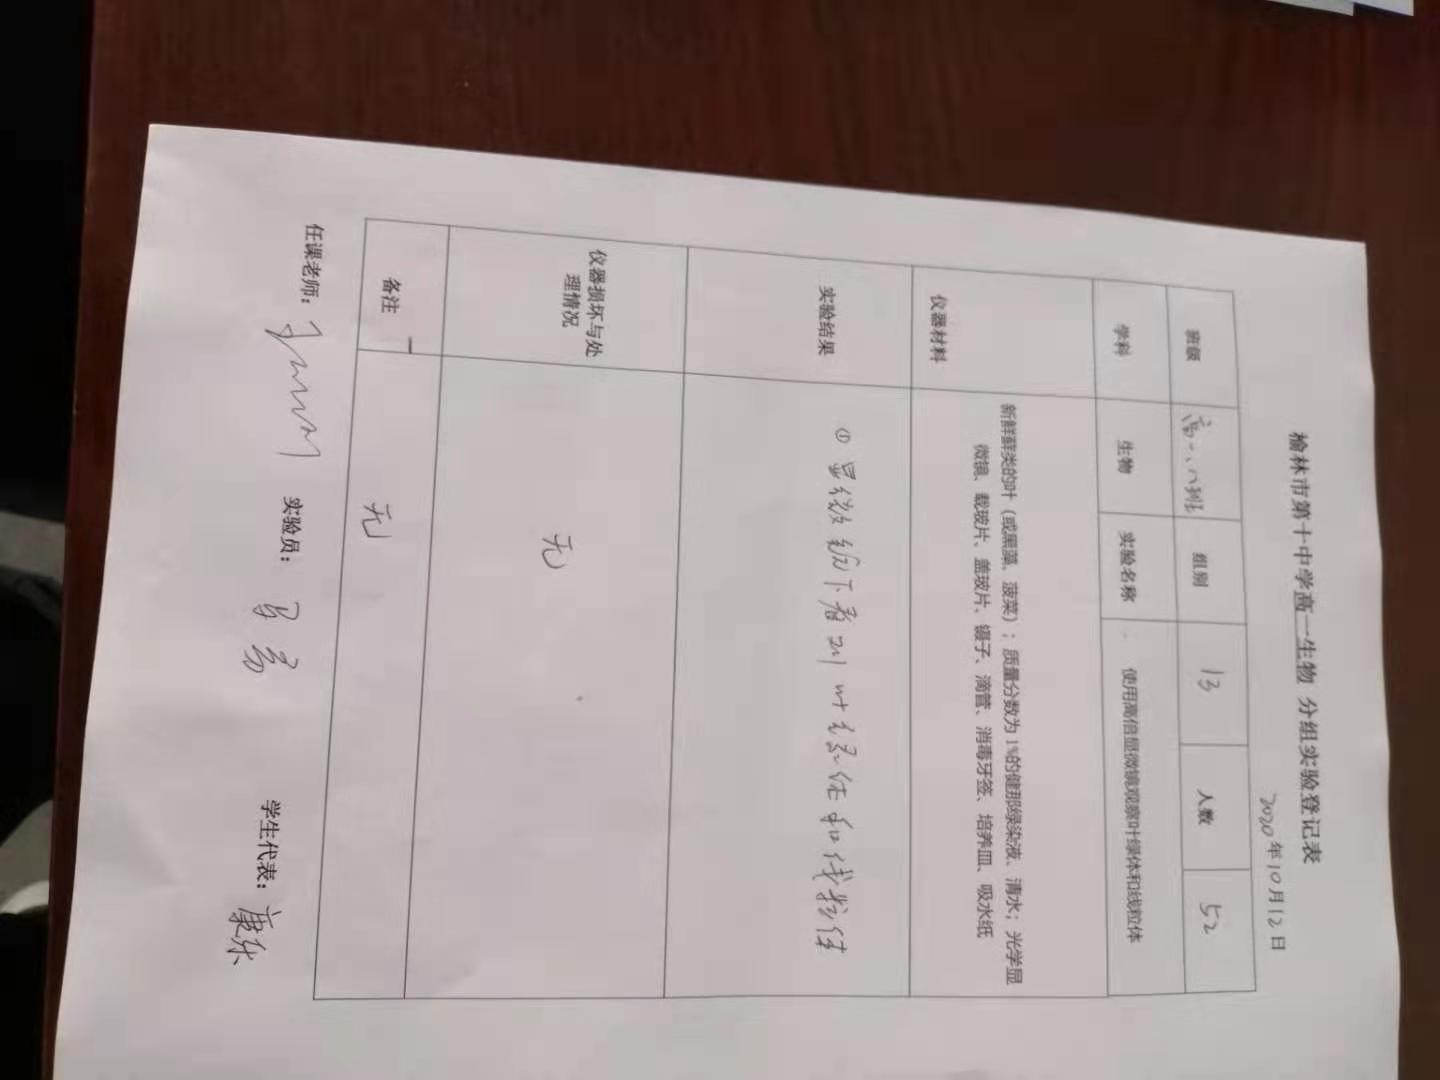 榆林市第十中学高一生物 分组实验登记表
2020年10月12日
班级 组别 13 人数 52
学科 生物 实验名称 使用高倍显微镜观察叶绿体和线粒体
仪器材料 新鲜藓类的叶(或黑藻、菠菜);质量分数为1%的健那绿染液、清水;光学显
微镜、载玻片、盖玻片、镊子、滴管、消毒牙签、培养皿、吸水纸
实验结果 ①显微镜下看到叶绿体和线粒体
仪器损坏与处
理情况 无
备注 无
任课老师: 实验员: 学生代表: